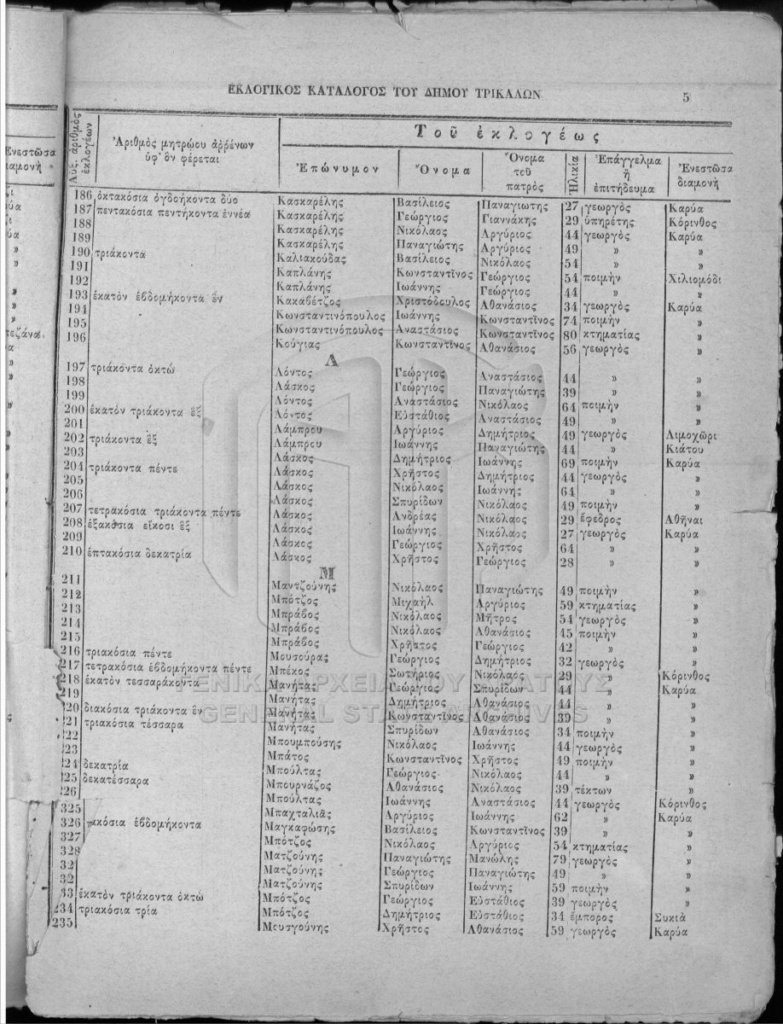 ΕΚΛΟΓΙΚΟΣ ΚΑΤΑΛΟΓΟΣ ΤΟΥ ΔΗΜΟΥ ΤΡΙΚΑΛΩΝ 5
Ἐνεστῶσα
διαμονὴ
Αὔξ. ἀριθμὸς ἐκλογέων
Ἀριθμὸς μητρῴου ἀῤῥένων
ὑφ' ὃν φέρεται
Τοῦ ἐκλογέως
Ἐπώνυμον
Ὄνομα
Ὄνομα
τοῦ
πατρὸς
Ἡλικία
Ἐπάγγελμα
ἢ
ἐπιτήδευμα
Ἐνεστῶσα
διαμονὴ
186 ὀκτακόσια ὀγδοήκοντα δύο Κασκαρέλης Βασίλειος Παναγιωτης 27 γεωργὸς Καρύα
187 πεντακόσια πεντήκοντα ἐννέα Κασκαρέλης Γεώργιος Γιαννάκης 29 ὑπηρέτης Κόρινθος
188 Κασκαρέλης Νικόλαος Ἀργύριος 44 γεωργὸς Καρύα
189 Κασκαρέλης Παναγιώτης Ἀργύριος 49 » »
190 τριάκοντα Καλιακούδας Βασίλειος Νικόλαος 54 » »
191 Καπλάνης Κωνσταντῖνος Γεώργιος 54 ποιμὴν Χιλιομόδι
192 Καπλάνης Ἰωάννης Γεώργιος 44 » »
193 ἑκατὸν ἑβδομήκοντα ἓν Κακαβέτζος Χριστόδουλος Ἀθανάσιος 34 γεωργὸς Καρύα
194 Κωνσταντινόπουλος Ἰωάννης Κωνσταντῖνος 74 ποιμὴν »
195 Κωνσταντινόπουλος Ἀναστάσιος Κωνσταντῖνος 80 κτηματίας »
196 Κούγιας Κωνσταντῖνος Ἀθανάσιος 56 γεωργὸς »
Λ
197 τριάκοντα ὀκτώ Λόντος Γεώργιος Ἀναστάσιος 44 » »
198 Λάσκος Γεώργιος Παναγιώτης 39 » »
199 Λόντος Ἀναστάσιος Νικόλαος 64 ποιμὴν »
200 ἑκατὸν τριάκοντα ἓξ Λόντος Εὐστάθιος Ἀναστάσιος 49 » »
201 Λάμπρου Ἀργύριος Δημήτριος 49 γεωργὸς Λιμοχῶρι
202 τριάκοντα ἓξ Λάμπρου Ἰωάννης Παναγιώτης 44 » Κιάτου
203 Λάσκος Δημήτριος Ἰωάννης 69 ποιμὴν Καρύα
204 τριάκοντα πέντε Λάσκος Χρῆστος Δημήτριος 44 γεωργὸς »
205 Λάσκος Νικόλαος Ἰωάννης 64 » »
206 Λάσκος Σπυρίδων Νικόλαος 49 ποιμὴν »
207 τετρακόσια τριάκοντα πέντε Λάσκος Ἀνδρέας Νικόλαος 29 ἔφεδρος Ἀθῆναι
208 ἑξακόσια εἴκοσι ἓξ Λάσκος Ἰωάννης Νικόλαος 27 γεωργὸς Καρύα
209 Λάσκος Γεώργιος Χρῆστος 64 » »
210 ἑπτακόσια δεκατρία Λάσκος Χρῆστος Γεώργιος 28 » »
Μ
211 Μαντζούνης Νικόλαος Παναγιώτης 49 ποιμὴν »
212 Μπότζος Μιχαὴλ Ἀργύριος 59 κτηματίας »
213 Μπράβος Νικόλαος Μῆτρος 54 γεωργὸς »
214 Μπράβος Νικόλαος Ἀθανάσιος 45 ποιμὴν »
215 Μπράβος Χρῆστος Γεώργιος 42 » »
216 τριακόσια πέντε Μουσούρας Γεώργιος Δημήτριος 32 γεωργὸς »
217 τετρακόσια ἑβδομήκοντα πέντε Μπέκος Σωτήριος Νικόλαος 29 » Κόρινθος
218 ἑκατὸν τεσσαράκοντα Μανήτας Γεώργιος Σπυρίδων 44 » Καρύα
219 Μανήτας Δημήτριος Ἀθανάσιος 44 » »
220 διακόσια τριάκοντα ἓν Μανήτας Κωνσταντῖνος Ἀθανάσιος 39 » »
221 τριακόσια τέσσαρα Μανήτας Σπυρίδων Ἀθανάσιος 34 ποιμὴν »
222 Μπουμπούσης Νικόλαος Ἰωάννης 44 γεωργὸς »
223 Μπάτος Κωνσταντῖνος Χρῆστος 49 ποιμὴν »
224 δεκατρία Μπούλτας Γεώργιος Νικόλαος 44 » »
225 δεκατέσσαρα Μπουρνάζος Ἀθανάσιος Νικόλαος 39 τέκτων »
226 Μπούλτας Ἰωάννης Ἀναστάσιος 44 γεωργὸς Κόρινθος
325 Μπαχταλιᾶς Ἀργύριος Ἰωάννης 62 » Καρύα
326 ακόσια ἑβδομήκοντα Μαγκαφώσης Βασίλειος Κωνσταντῖνος 39 » »
327 Μπότζος Νικόλαος Ἀργύριος 54 κτηματίας »
328 Ματζούνης Παναγιώτης Μανώλης 79 γεωργὸς »
32 Ματζούνης Γεώργιος Παναγιώτης 49 » »
32 Ματζούνης Σπυρίδων Ἰωάννης 59 ποιμὴν »
33 ἑκατὸν τριάκοντα ὀκτώ Μπότζος Γεώργιος Εὐστάθιος 39 γεωργὸς »
234 τριακόσια τρία Μπότζος Δημήτριος Εὐστάθιος 34 ἔμπορος Συκιὰ
235 Μευσγούνης Χρῆστος Ἀθανάσιος 59 γεωργὸς Καρύα
ΓΕΝΙΚΑ ΑΡΧΕΙΑ ΤΟΥ ΚΡΑΤΟΥΣ
GENERAL STATE ARCHIVES